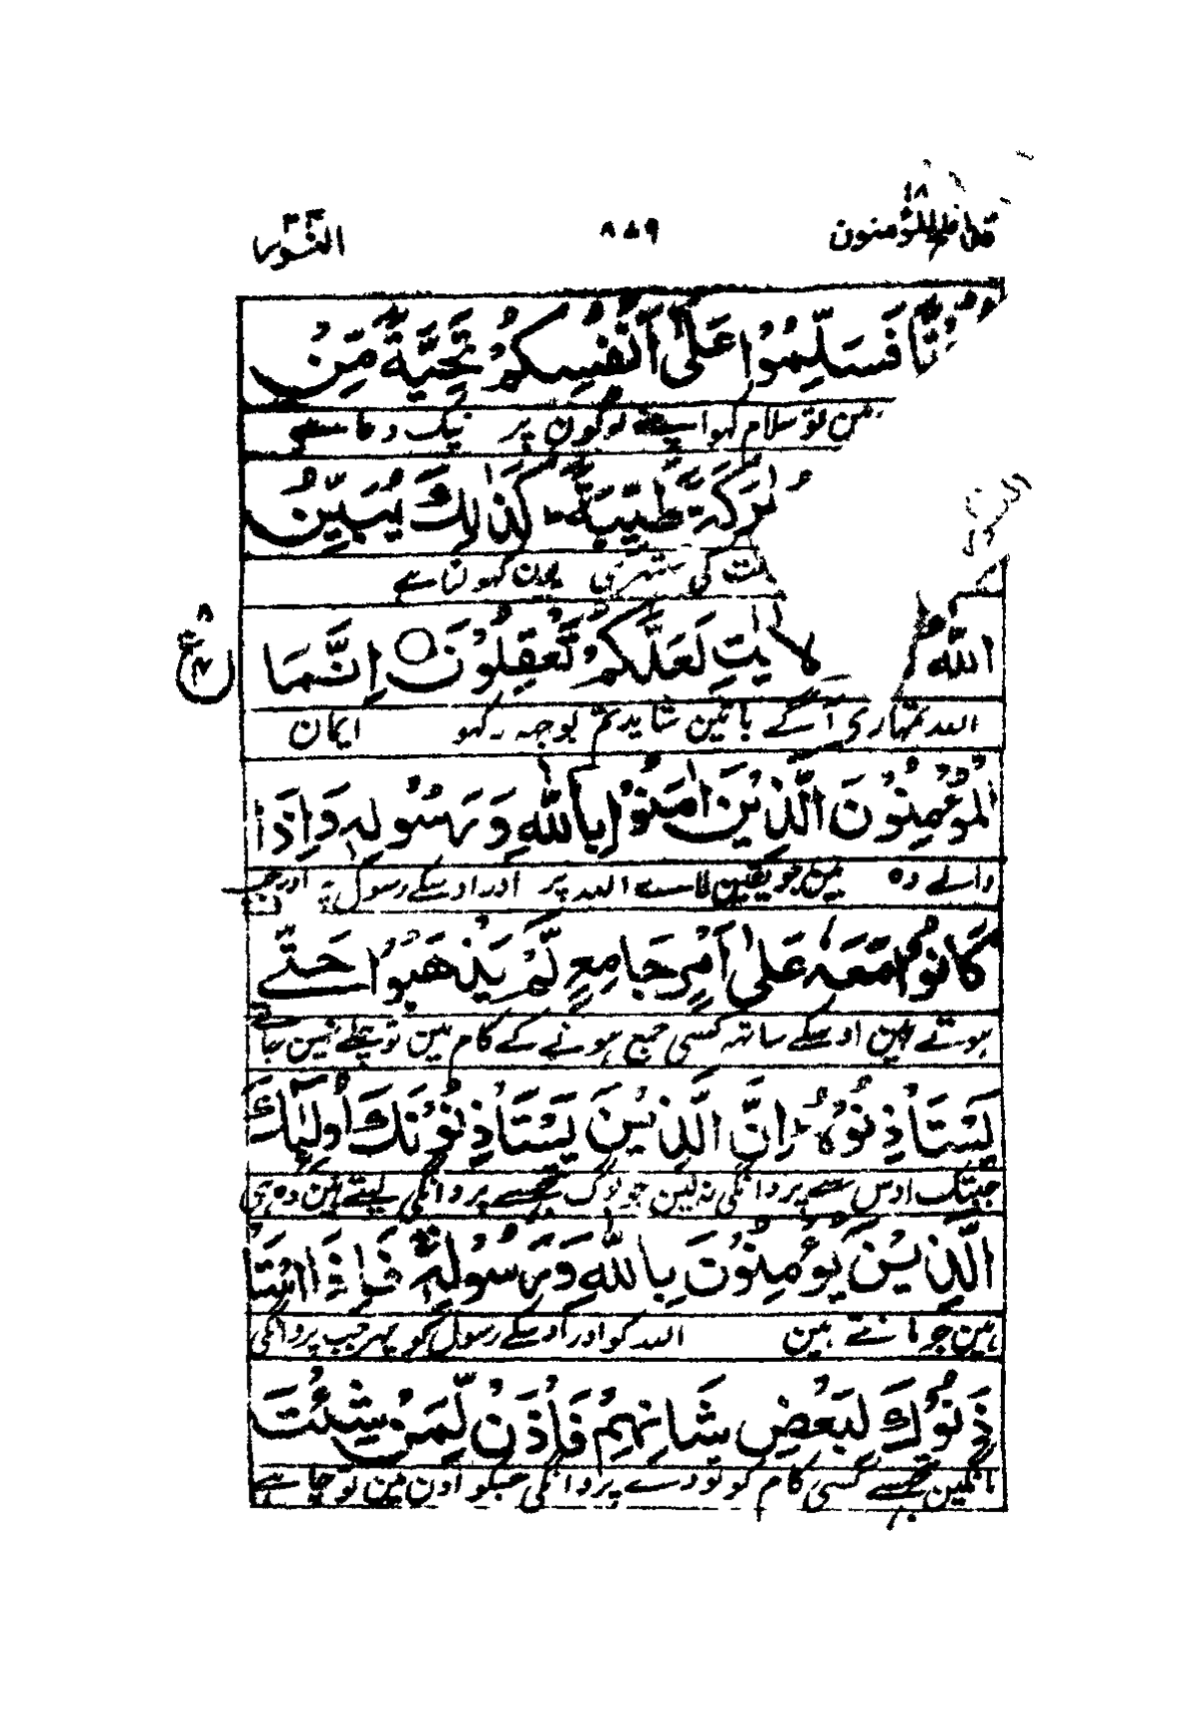 قد افلح المؤمنون ١٨ ٨٥٩ النّور ٢٤
تًا فَسَلِّمُوْا عَلٰٓى اَنْفُسِكُمْ تَحِيَّةً مِّنْ
مین تو سلام کہو اپنے لوگون پر نیک دعا ہے
مُبٰرَكَةً طَيِّبَةً كَذٰلِكَ يُبَيِّنُ
کت کی ستھری یون کھولتا ہے
اللّٰهُ لَاٰيٰتِ لَعَلَّكُمْ تَعْقِلُوْنَ ۝ اِنَّمَا
٨ ع ٧
اللہ تمہاری آگے باتین شاید تم بوجہ رکہو ایمان
الْمُؤْمِنُوْنَ الَّذِيْنَ اٰمَنُوْا بِاللّٰهِ وَرَسُوْلِهٖ وَاِذَا
والے وہ ہین جو یقین لائے اللہ پر اور اوسکے رسول پر اور جب
كَانُوْا مَعَهٗ عَلٰٓى اَمْرٍ جَامِعٍ لَّمْ يَذْهَبُوْا حَتّٰى
ہوتے ہین اوسکے ساتہ کسی جمع ہونے کے کام مین تو چلے نہین جاتے
يَسْتَاْذِنُوْهُ اِنَّ الَّذِيْنَ يَسْتَاْذِنُوْنَكَ اُولٰٓئِكَ
جبتک اوس سے پروانگی نہ لین جو لوگ تجھسے پروانگی لیتے ہین وہ ہی
الَّذِيْنَ يُؤْمِنُوْنَ بِاللّٰهِ وَرَسُوْلِهٖ فَاِذَا اسْتَا
ہین جو مانتے ہین اللہ کو اور اوسکے رسول کو پہر جب پروانگی
ذَنُوْكَ لِبَعْضِ شَاْنِهِمْ فَاْذَنْ لِّمَنْ شِئْتَ
مانگین تجھسے کسی کام کو تو دے پروانگی جسکو اون مین تو چاہے